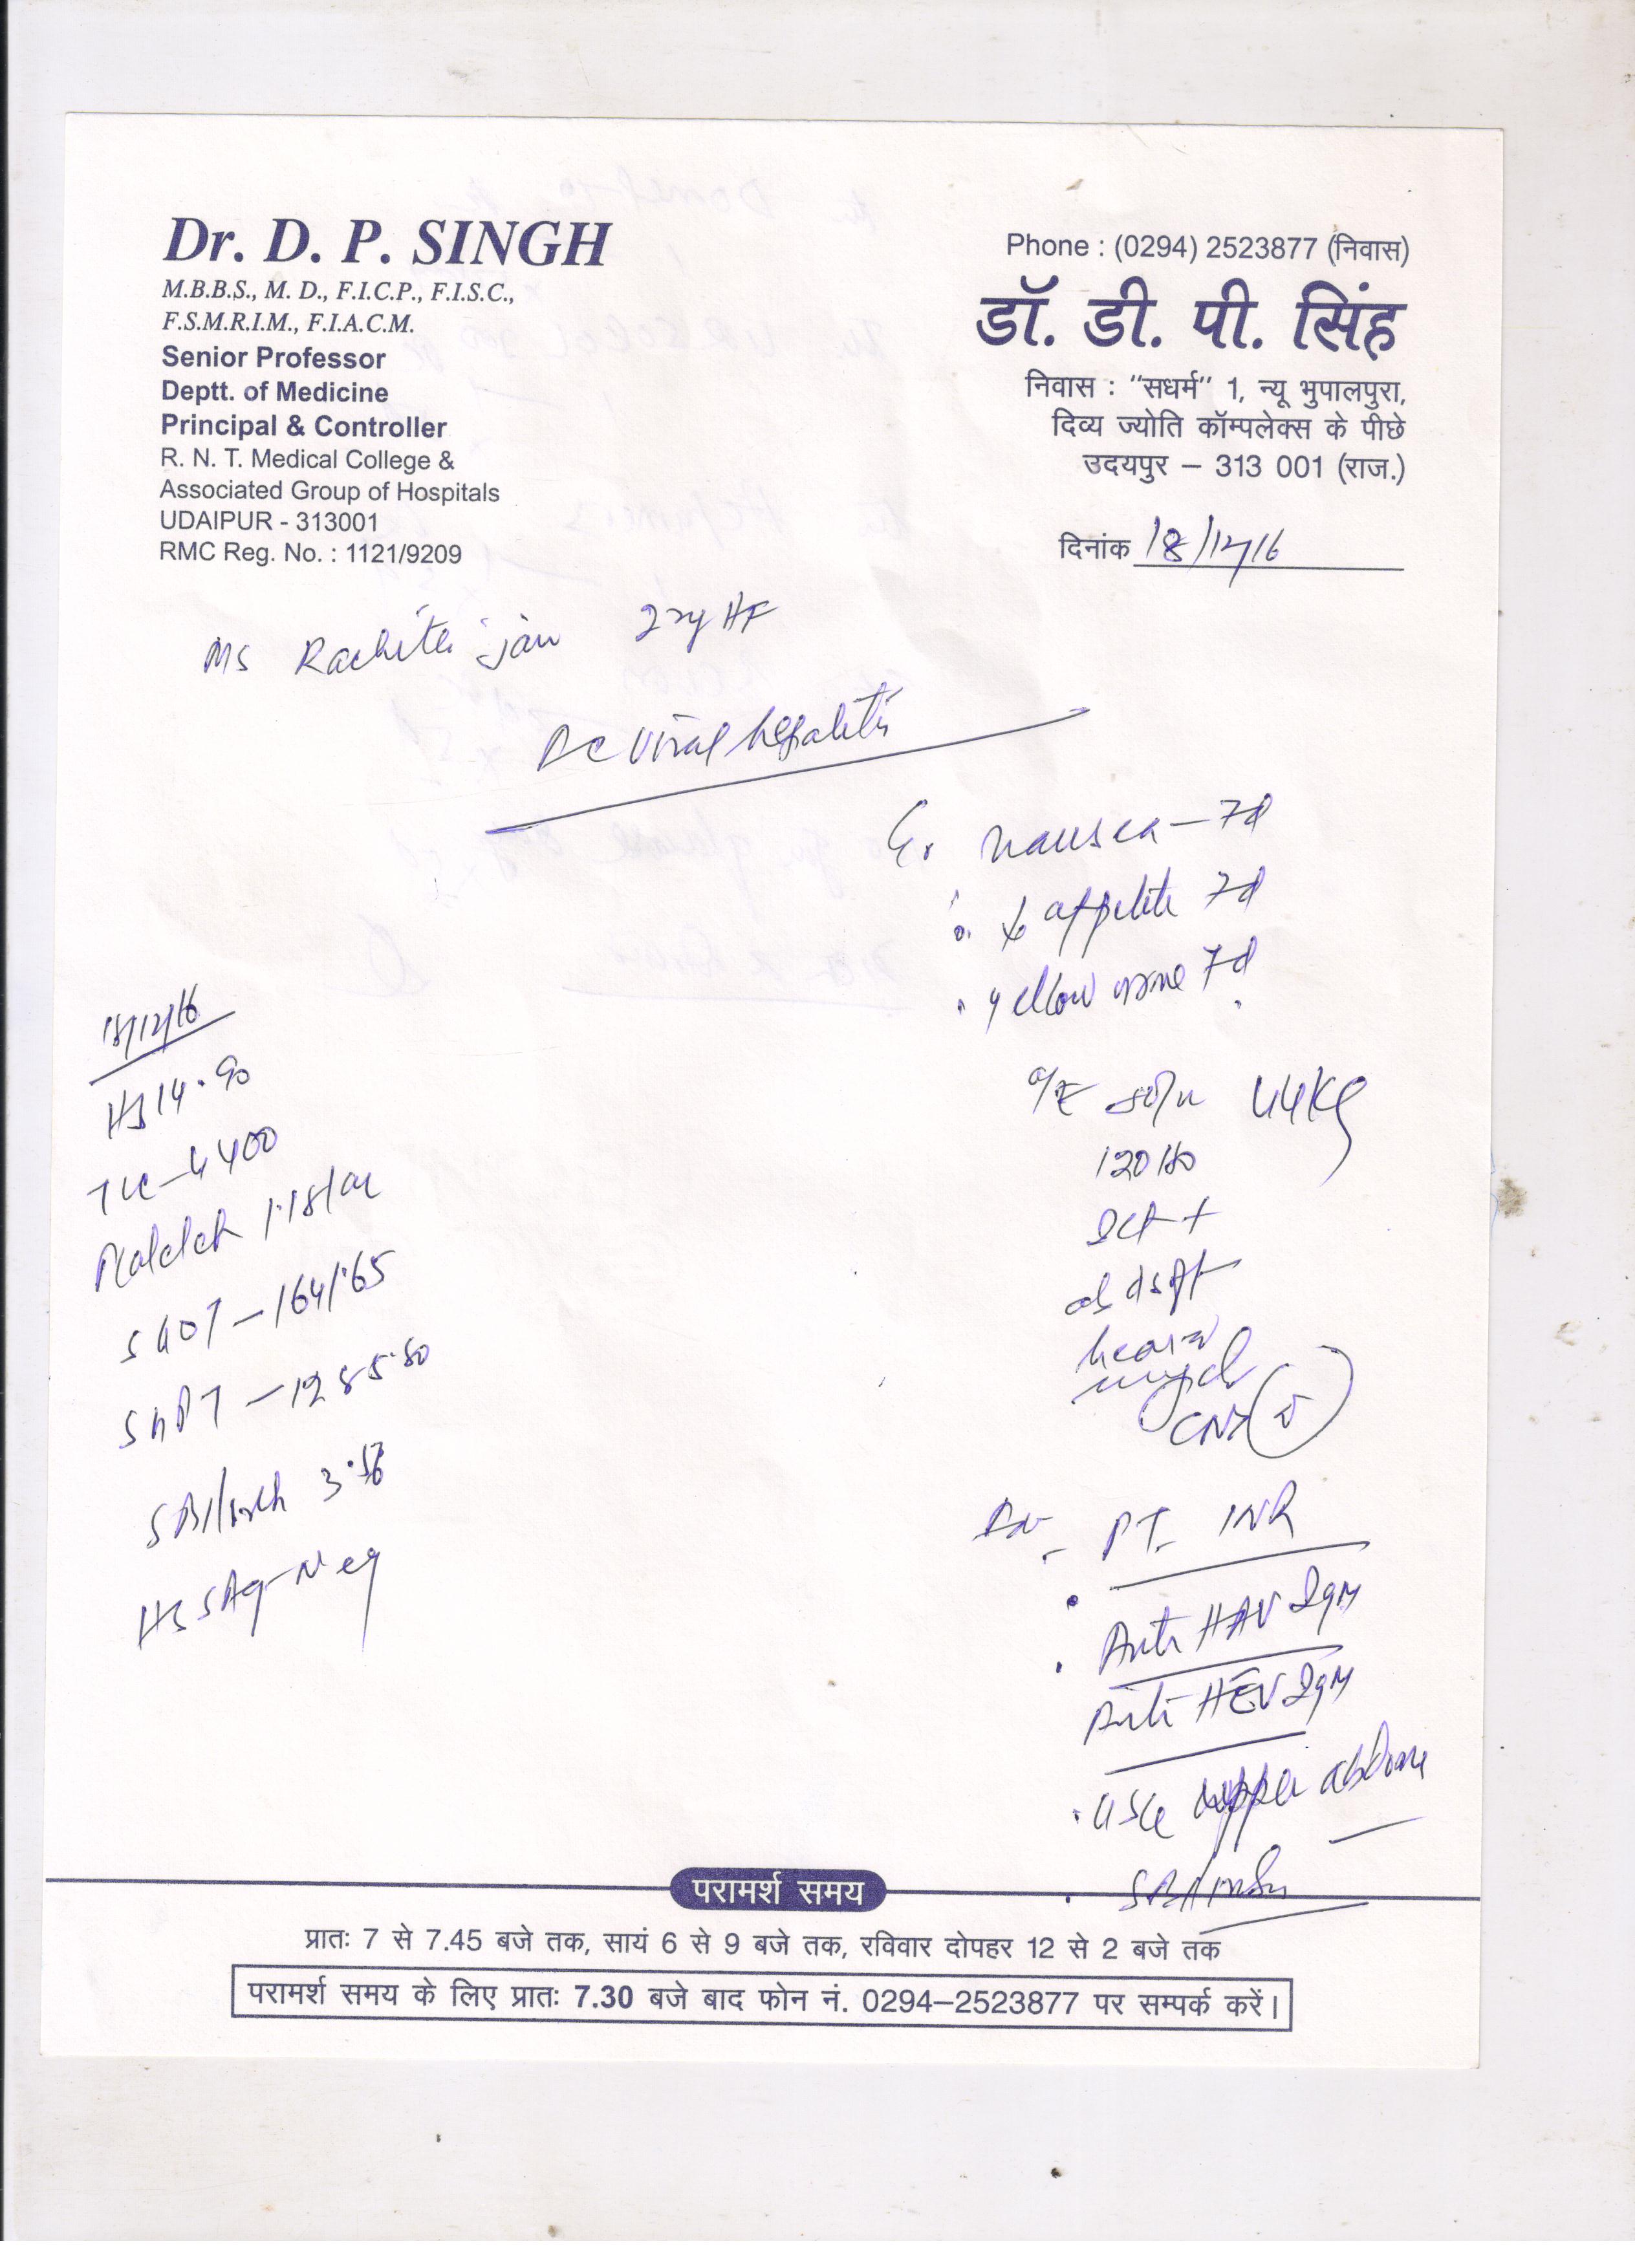 Dr. D. P. SINGH
M.B.B.S., M. D., F.I.C.P., F.I.S.C.,
F.S.M.R.I.M., F.I.A.C.M.
Senior Professor
Deptt. of Medicine
Principal & Controller
R. N. T. Medical College &
Associated Group of Hospitals
UDAIPUR - 313001
RMC Reg. No. : 1121/9209
Phone : (0294) 2523877 (निवास)
डॉ. डी. पी. सिंह
निवास : "सधर्म" 1, न्यू भुपालपुरा,
दिव्य ज्योति कॉम्पलेक्स के पीछे
उदयपुर – 313 001 (राज.)
दिनांक 18/12/16
Ms Rachita jain
Ac Viral hepatitis
nausea - 7d
appetite 7d
yellow urine 7d
O/E 80/m 44Kg
120/80
18/12/16
Hb 14.90
TLC - 4400
Platelet 1.18
SGOT - 164.65
SGPT - 1285.80
HBSAg - Neg
PT - INR
Anti HAV IgM
Anti HEV IgM
USG upper abdomen
परामर्श समय
प्रातः 7 से 7.45 बजे तक, सायं 6 से 9 बजे तक, रविवार दोपहर 12 से 2 बजे तक
परामर्श समय के लिए प्रातः 7.30 बजे बाद फोन नं. 0294–2523877 पर सम्पर्क करें।